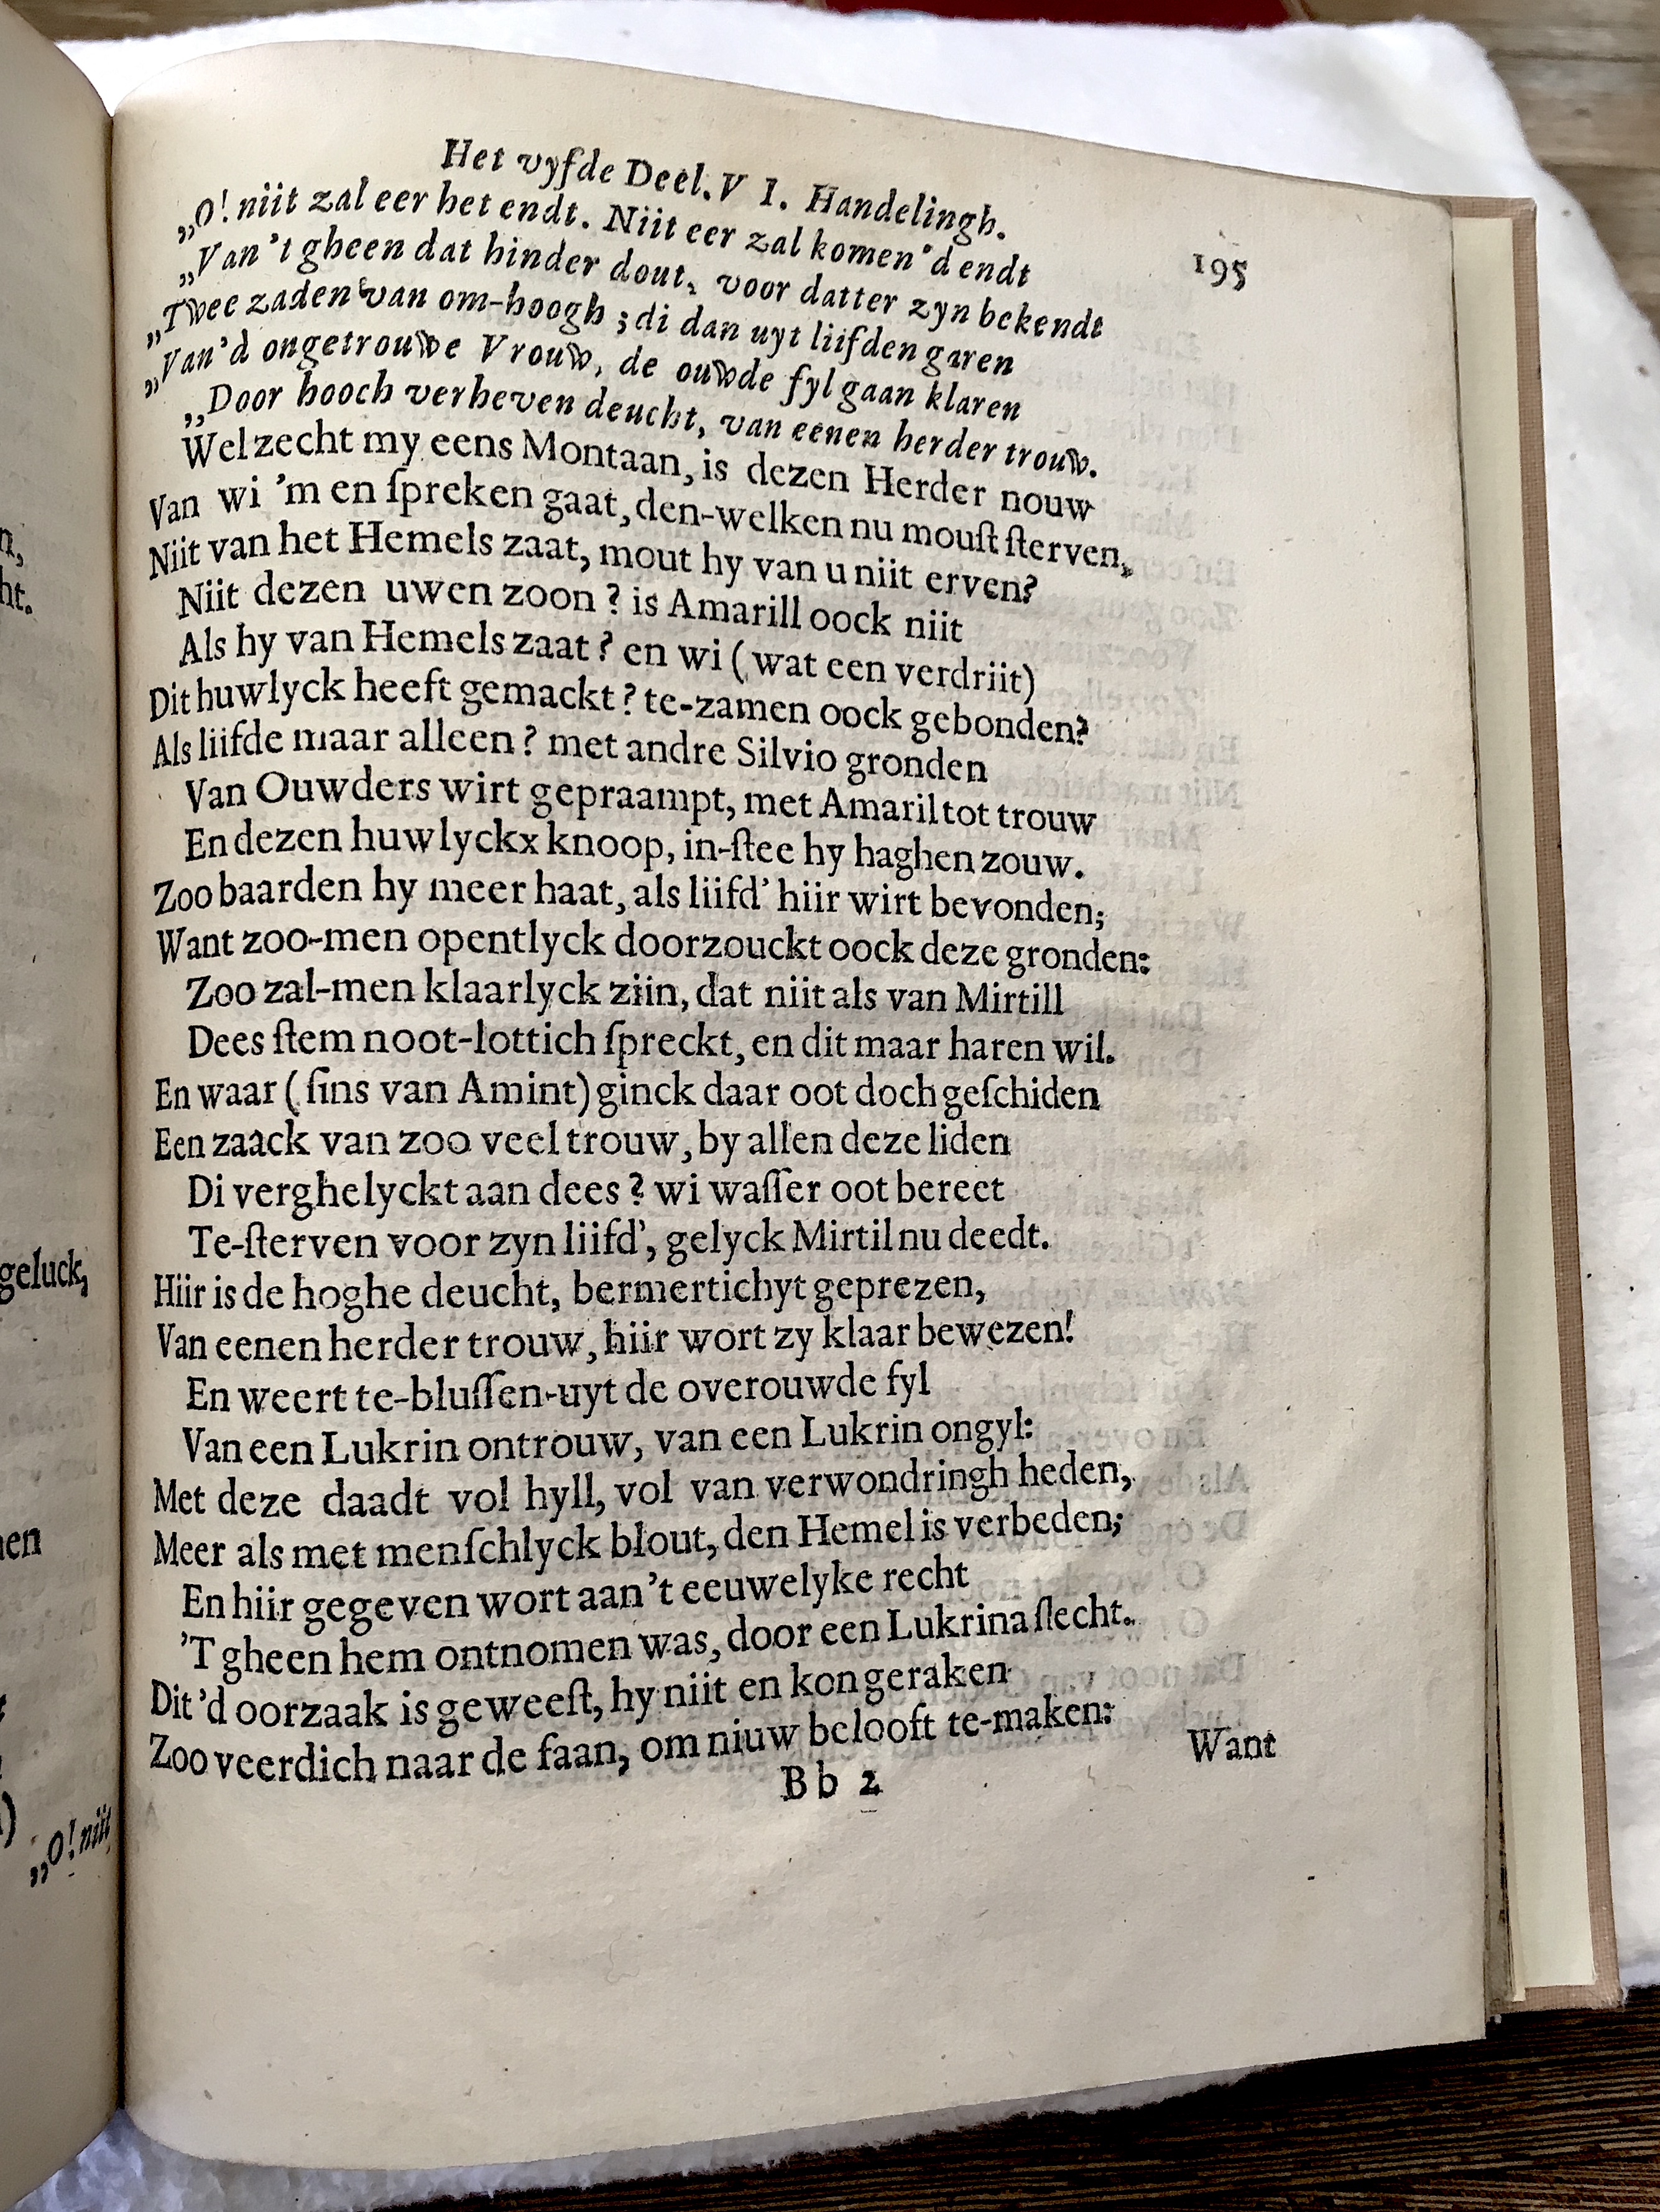 n,
ht.
geluck,
nen
)
„O! niit
Het vyfde Deel. V I. Handelingh.
195
„O! niit zal eer het endt. Niit eer zal komen 'd endt
„Van 't gheen dat hinder dout, voor datter zyn bekendt
„Twee zaden van om-hoogh ; di dan uyt liifden garen
„Van 'd ongetrouwe Vrouw, de ouwde fyl gaan klaren
„Door hooch verheven deucht, van eenen herder trouw.
Wel zecht my eens Montaan, is dezen Herder nouw
Van wi 'm en ſpreken gaat, den-welken nu mouſt ſterven,
Niit van het Hemels zaat, mout hy van u niit erven?
Niit dezen uwen zoon ? is Amarill oock niit
Als hy van Hemels zaat ? en wi ( wat een verdriit)
Dit huwlyck heeft gemackt ? te-zamen oock gebonden?
Als liifde maar alleen ? met andre Silvio gronden
Van Ouwders wirt gepraampt, met Amaril tot trouw
En dezen huwlyckx knoop, in-ſtee hy haghen zouw.
Zoo baarden hy meer haat, als liifd' hiir wirt bevonden;
Want zoo-men opentlyck doorzouckt oock deze gronden:
Zoo zal-men klaarlyck ziin, dat niit als van Mirtill
Dees ſtem noot-lottich ſpreckt, en dit maar haren wil.
En waar ( ſins van Amint) ginck daar oot doch geſchiden
Een zaack van zoo veel trouw, by allen deze liden
Di verghelyckt aan dees ? wi waſſer oot bereet
Te-ſterven voor zyn liifd', gelyck Mirtil nu deedt.
Hiir is de hoghe deucht, bermertichyt geprezen,
Van eenen herder trouw, hiir wort zy klaar bewezen!
En weert te-bluſſen-uyt de overouwde fyl
Van een Lukrin ontrouw, van een Lukrin ongyl:
Met deze daadt vol hyll, vol van verwondringh heden,
Meer als met menſchlyck blout, den Hemel is verbeden;
En hiir gegeven wort aan 't eeuwelyke recht
'T gheen hem ontnomen was, door een Lukrina ſlecht.
Dit 'd oorzaak is geweeſt, hy niit en kon geraken
Zoo veerdich naar de faan, om niuw belooft te-maken:
B b 2
Want